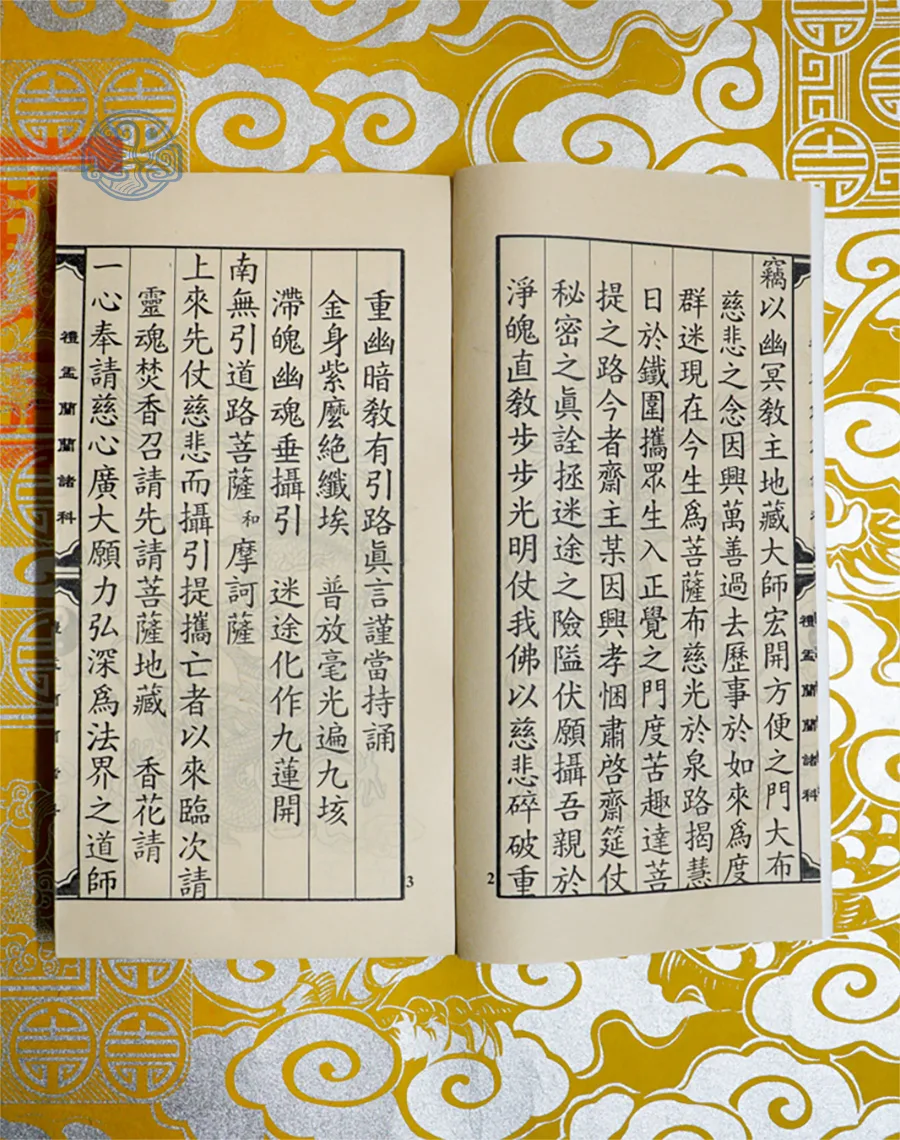 竊以幽冥教主地藏大師宏開方便之門大布
慈悲之念因興萬善過去歷事於如來為度
群迷現在今生為菩薩布慈光於泉路揭慧
日於鐵圍攜眾生入正覺之門度苦趣達菩
提之路今者齋主某因興孝悃肅啓齋筵仗
秘密之眞詮拯迷途之險隘伏願攝吾親於
淨魄直教步步光明仗我佛以慈悲碎破重
2
禮盂蘭蘭諸科
重幽暗教有引路眞言謹當持誦
金身紫麽絶纖埃 普放毫光遍九垓
滯魄幽魂垂攝引 迷途化作九蓮開
南無引道路菩薩和摩訶薩
上來先仗慈悲而攝引提攜亡者以來臨次請
靈魂焚香召請先請菩薩地藏 香花請
一心奉請慈心廣大願力弘深為法界之道師
3
禮盂蘭蘭諸科